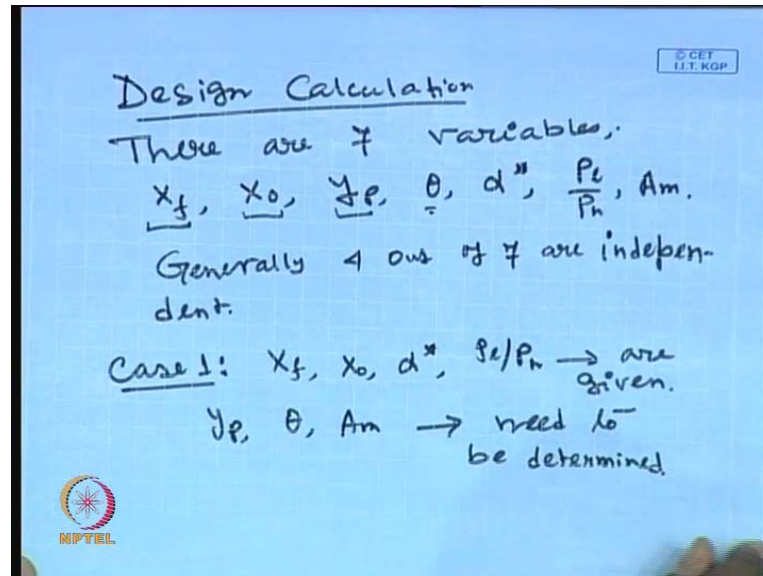 © CET
I.I.T. KGP
Design Calculation
There are 7 variables,.
xf, xo, yp, θ, α*, Pl/Ph, Am.
Generally 4 out of 7 are indepen-
dent.
Case 1: xf, xo, α*, Pl/Ph → are
given.
yp, θ, Am → need to
be determined.
NPTEL